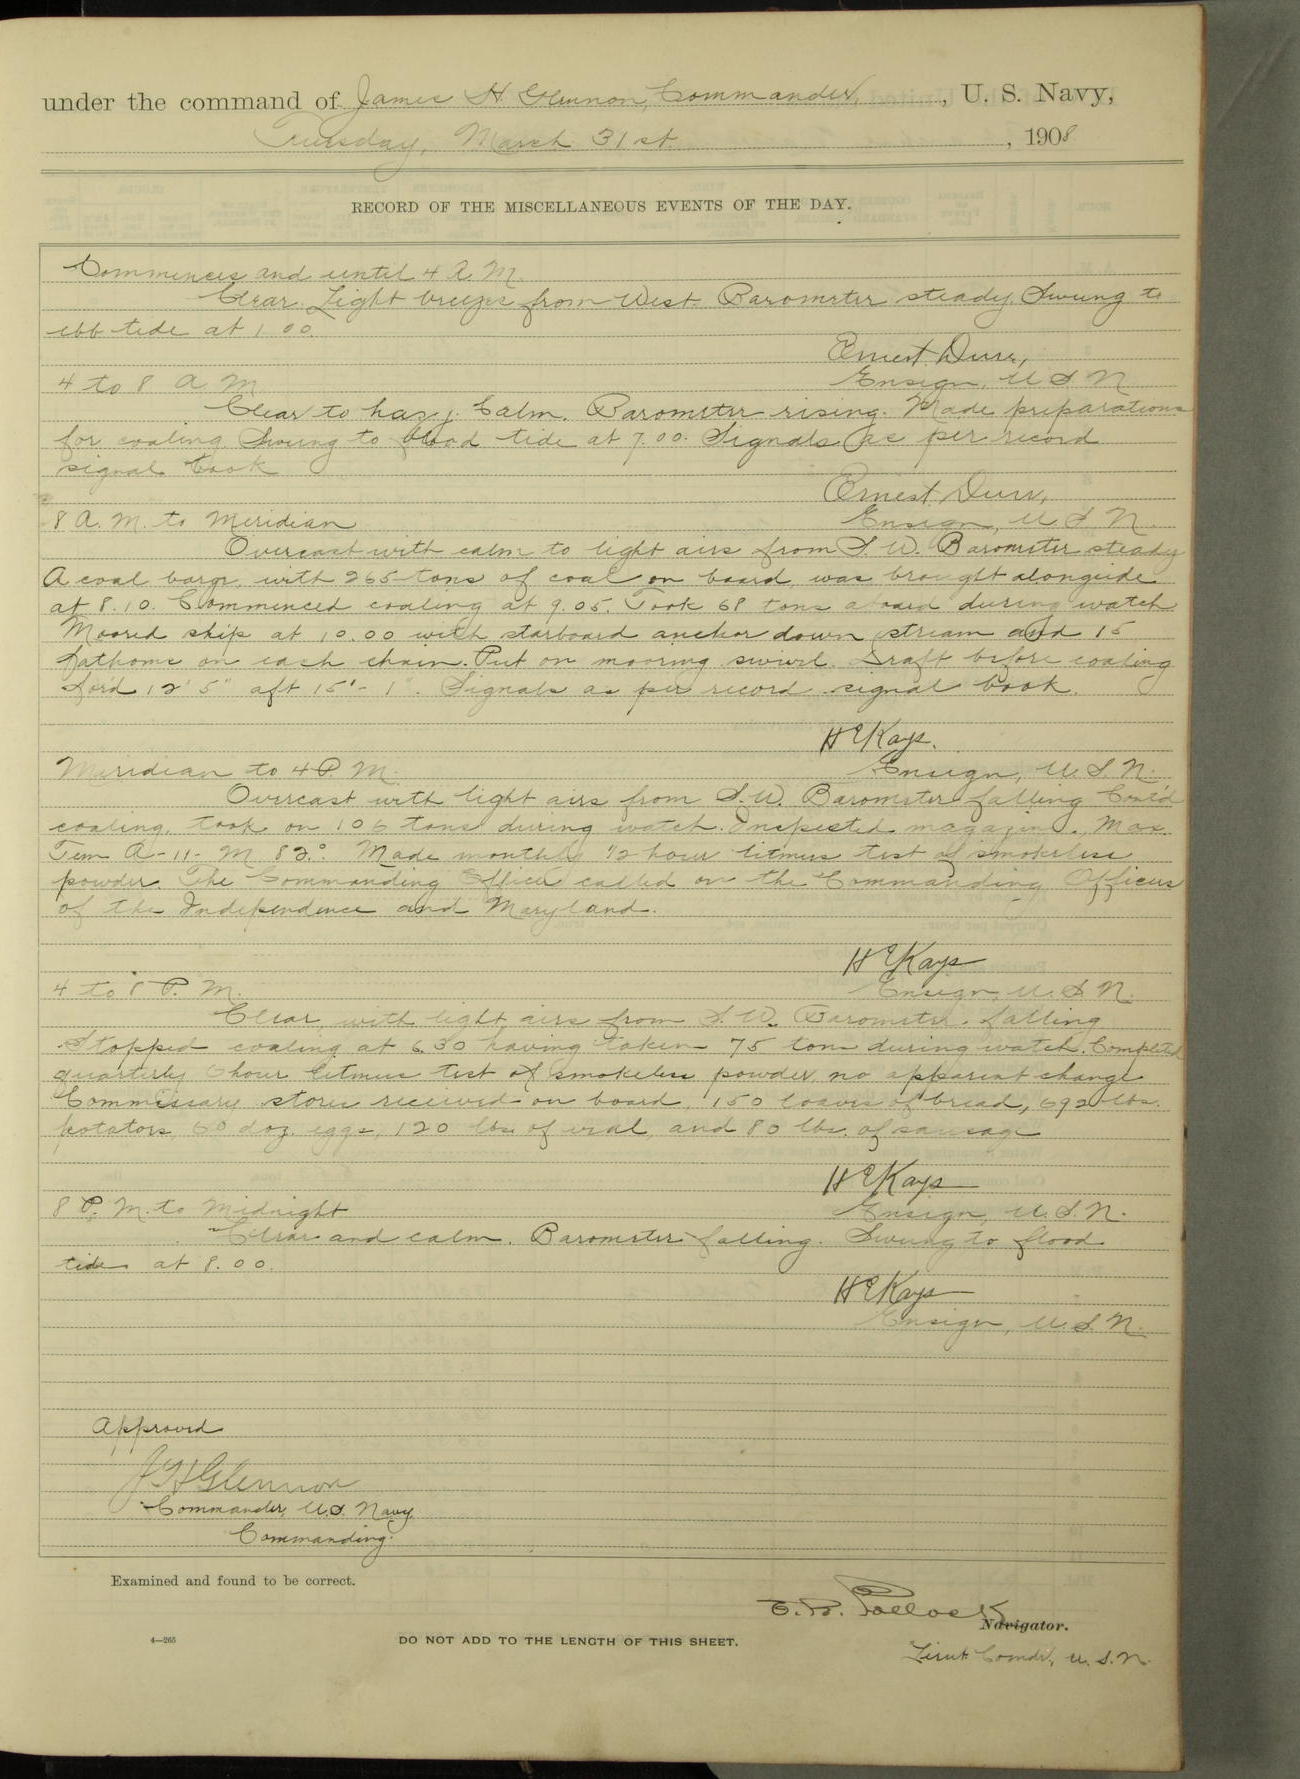 under the command of James H. Glennon, Commander, , U. S. Navy,
Tuesday, March 31st , 1908
RECORD OF THE MISCELLANEOUS EVENTS OF THE DAY.
Commences and until 4 A. M.
Clear. Light breezes from West. Barometer steady. Swung to
ebb tide at 1 00.
Ernest Durr,
4 to 8 A M
Ensign, U S N
Clear to hazy. Calm. Barometer rising. Made preparations
for coaling. Swung to flood tide at 7.00. Signals as per record
signal book
Ernest Durr,
8 A. M. to Meridian
Ensign, U. S. N.
Overcast with calm to light airs from S. W. Barometer steady
A coal barge, with 265 tons of coal on board, was brought alongside
at 8.10. Commenced coaling at 9.05. Took 68 tons aboard during watch
Moored ship at 10.00 with starboard anchor down stream and 15
fathoms on each chain. Put on mooring swivel. Draft before coaling
for'd 12' 5" aft 15' - 1". Signals as per record signal book.
H E Kays.
Meridian to 4 P. M.
Ensign, U. S. N.
Overcast with light airs from S. W. Barometer falling Cont'd
coaling, took on 106 tons during watch. Inspected magazine., Max.
Tem A - 11 - M 82.° Made monthly 1/2 hour litmus test of smokeless
powder. The Commanding Officer called on the Commanding Officers
of the Independence and Maryland.
H E Kays
4 to 8 P. M.
Ensign, U. S. N.
Clear, with light airs from S. W. Barometer falling
Stopped coaling at 6.30 having taken 75 tons during watch. Completed
quarterly 6 hour litmus test of smokeless powder, no apparent change
Commissary stores received on board, 150 loaves of bread, 692 lbs.
potatoes, 60 doz. eggs, 120 lbs. of veal, and 80 lbs. of sausage
H E Kays
8 P. M. to Midnight
Ensign, U. S. N.
Clear and calm. Barometer falling. Swung to flood
tide at 8.00.
H E Kays
Ensign, U. S. N.
Approved
J H Glennon
Commander, U.S. Navy
Commanding.
Examined and found to be correct.
E. R. Pollock
Navigator.
4—265
DO NOT ADD TO THE LENGTH OF THIS SHEET.
Lieut Comdr, U. S. N.